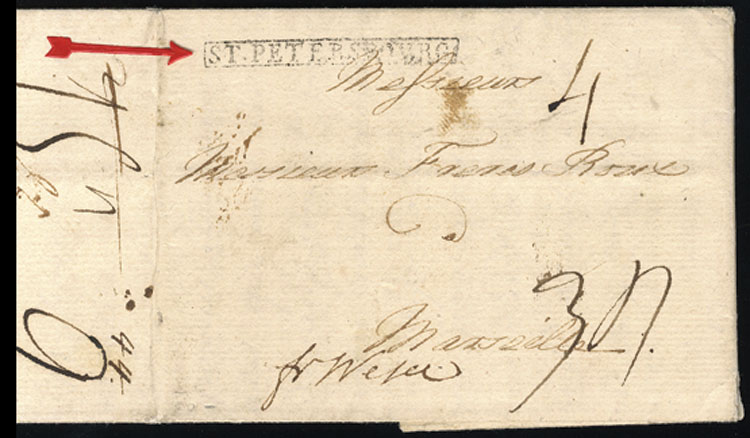 ST.PETERSBOURG
Messieurs
4
Messieurs Freres Roux
Marseille.
37
fr Wesel
44.